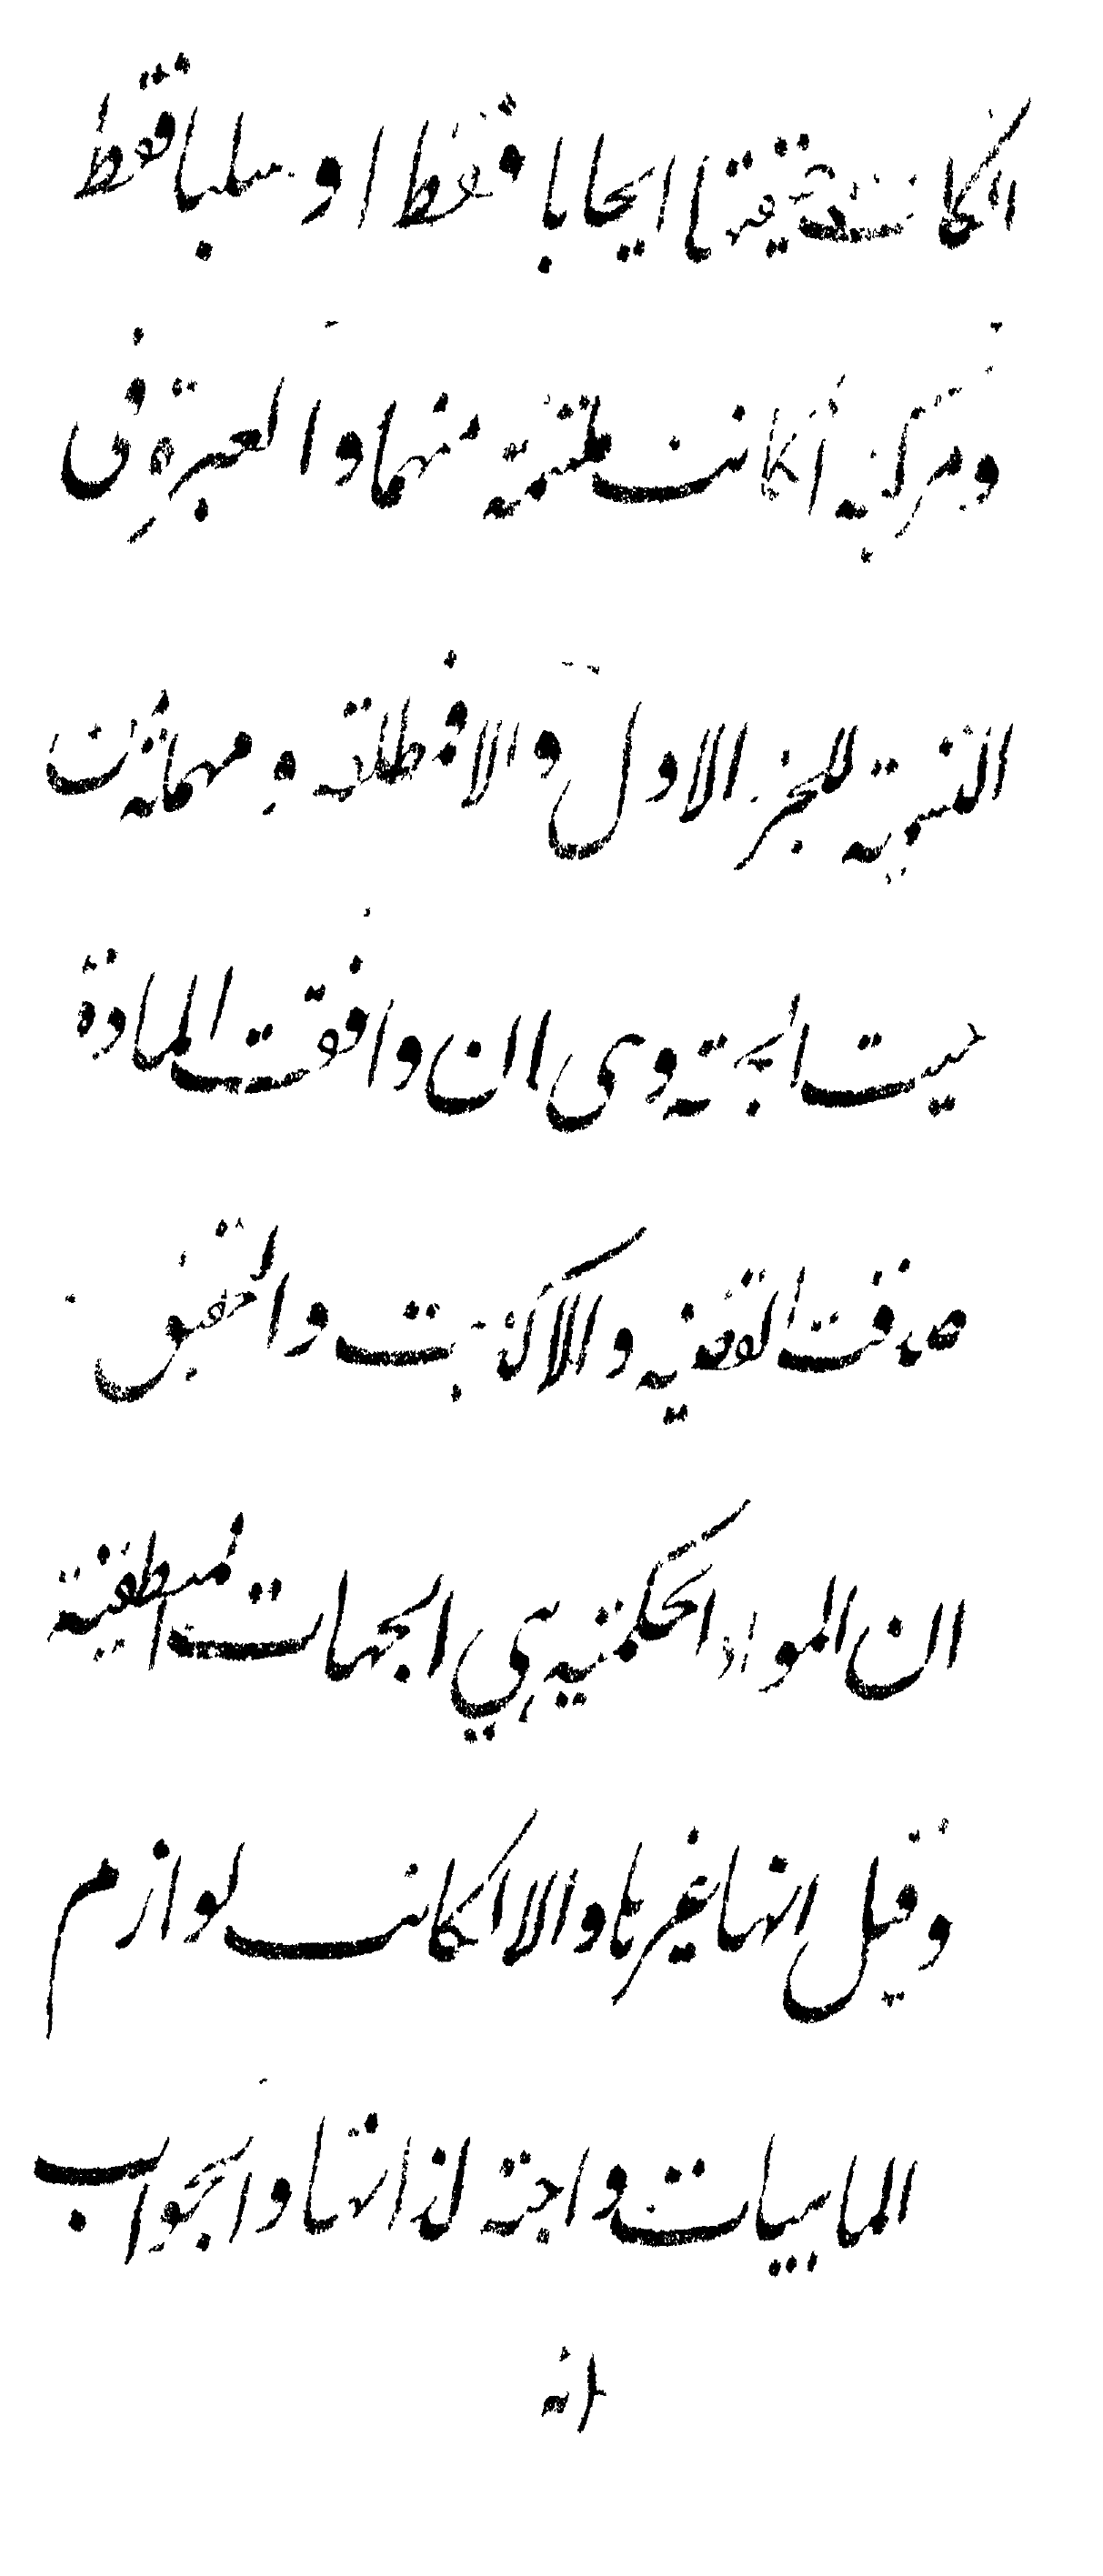 ان كانت حقيقتها ايجابا فقط او سلبا فقط
ومركبة ان كانت ملتئمة منهما والعبرة في
التسمية للجزء الاول والا فمطلقة ومهملة
حيث الجهة وهي ان وافقت المادة
صدقت القضية والا كذبت والتحقيق
ان المواد الحكمية هي الجهات المنطقية
وقيل انها غيرها والا لكانت لوازم
الماهيات واجبة لذاتها والجواب
انه